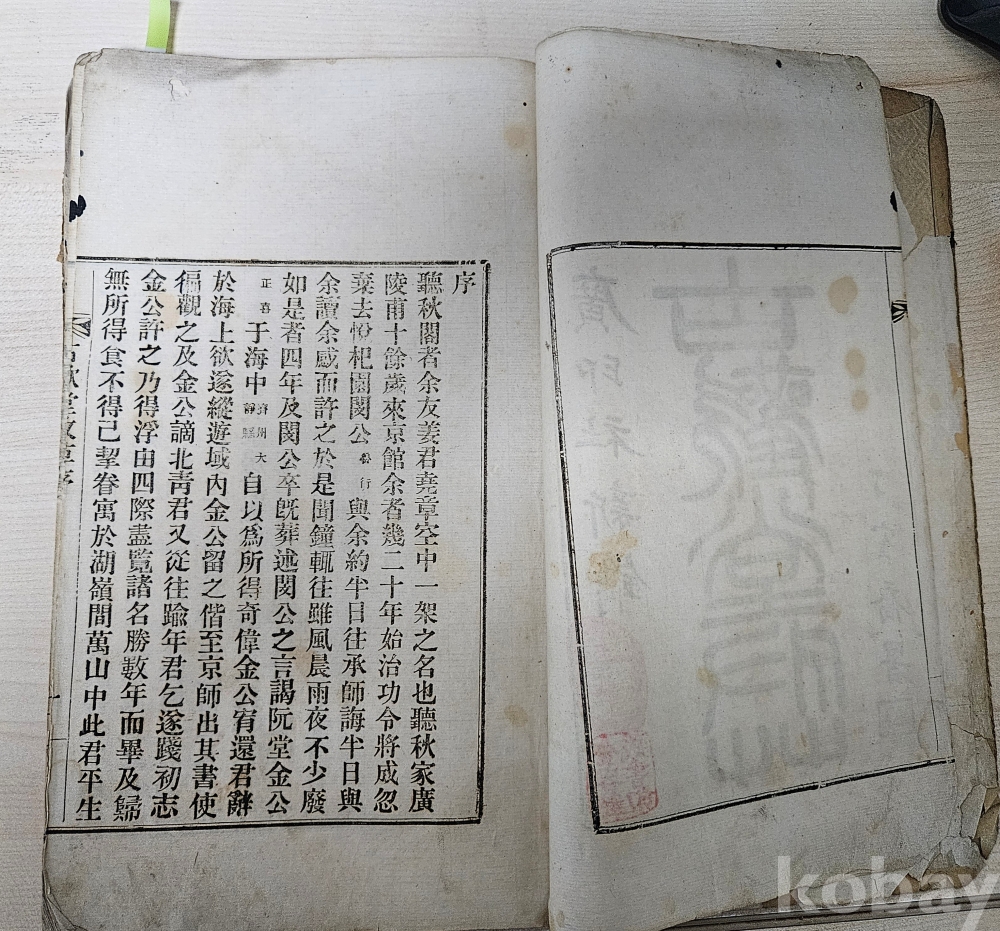 序
聽秋閣者余友姜君堯章空中一架之名也聽秋家廣
陵甫十餘歲來京館余者幾二十年始治功令將成忽
棄去悅杞園閔公 行 與余約半日往承師誨半日與
余讀余感而許之於是聞鐘輒往雖風晨雨夜不少廢
如是者四年及閔公卒旣葬述閔公之言謁阮堂金公
正喜 于海中 濟州大靜縣 自以爲所得奇偉金公宥還君辭
於海上欲遂縱遊域內金公留之偕至京師出其書使
徧觀之及金公謫北靑君又從往踰年君乞遂踐初志
金公許之乃得浮由四際盡覽諸名勝數年而畢及歸
無所得食不得已挈眷寓於湖嶺間萬山中此君平生
堂 序
一
kobay